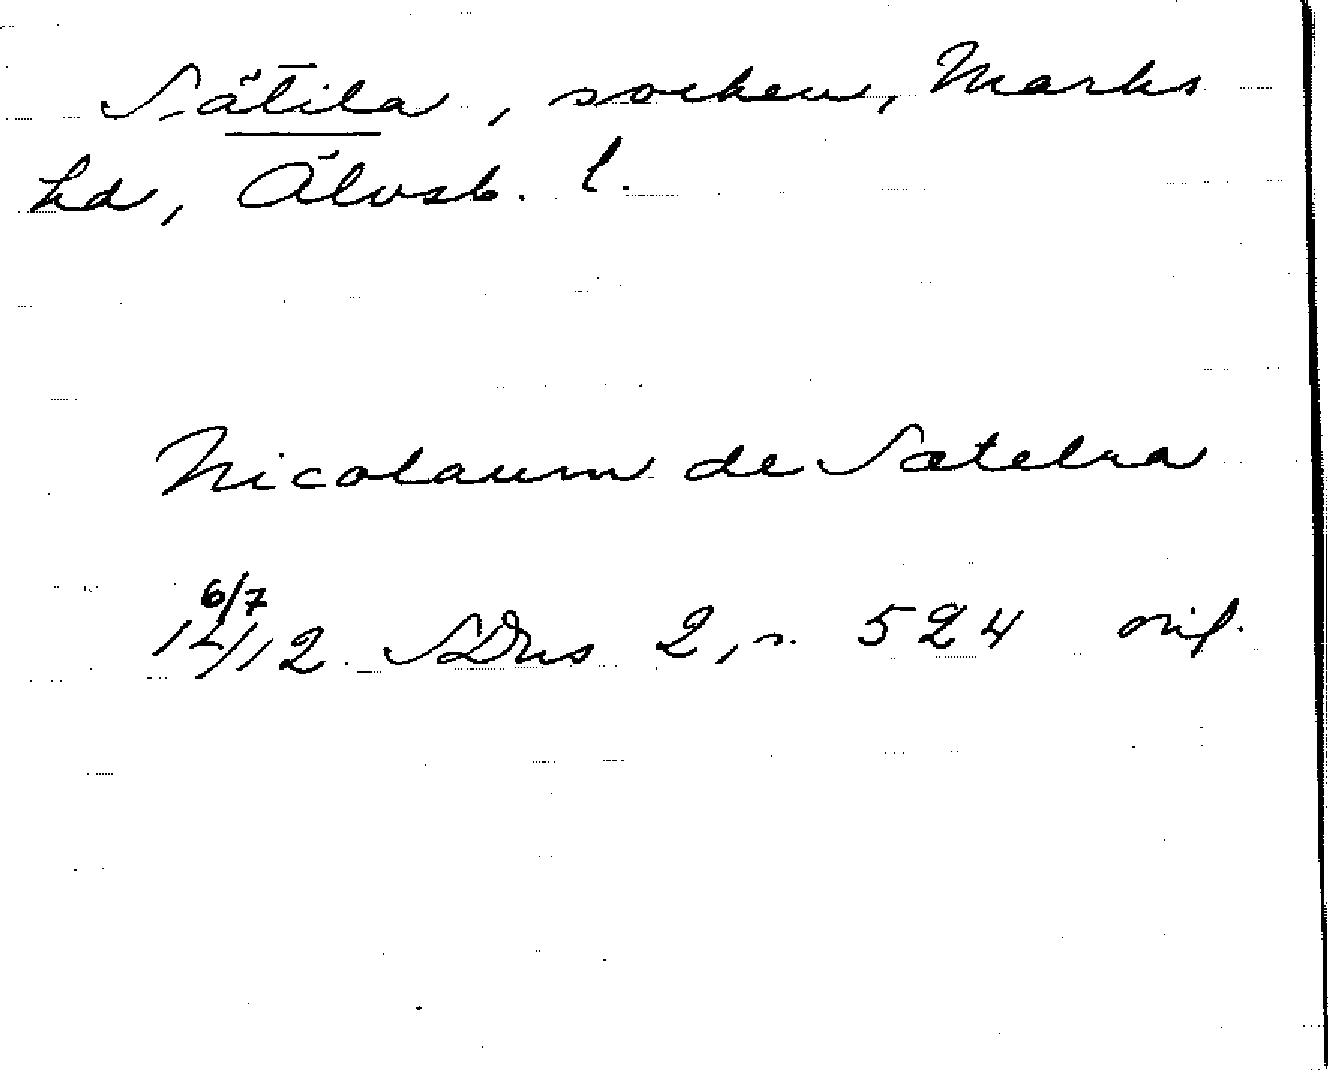 Sätila, socken, Marks
hd, Älvsb. l.
Nicolaum de Sætelra
14 6/7 12 SDns 2, s. 524 orig.